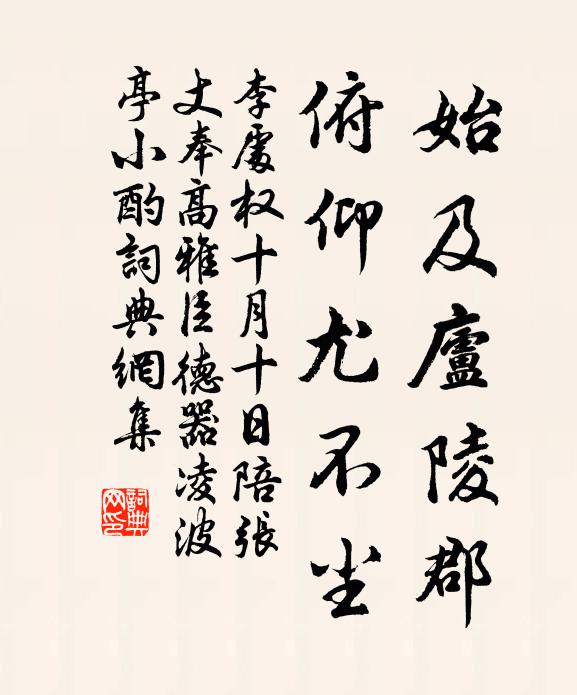 始及廬陵郡
俯仰尤不尘
李處权十月十日陪張
丈奉高雅臣德器凌波
亭小酌詞典網集
詞典网印